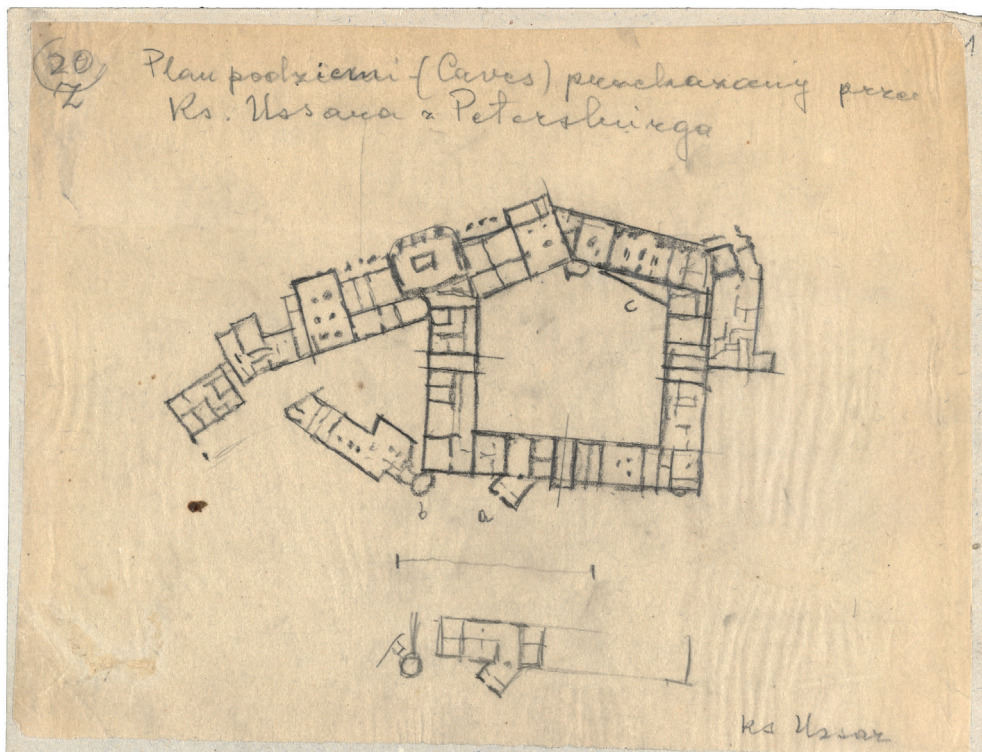 20
Z
Plan podziemi (Caves) przekazany przez
Ks. Ussara z Petersburga
c
b
a
ks Ussar
1